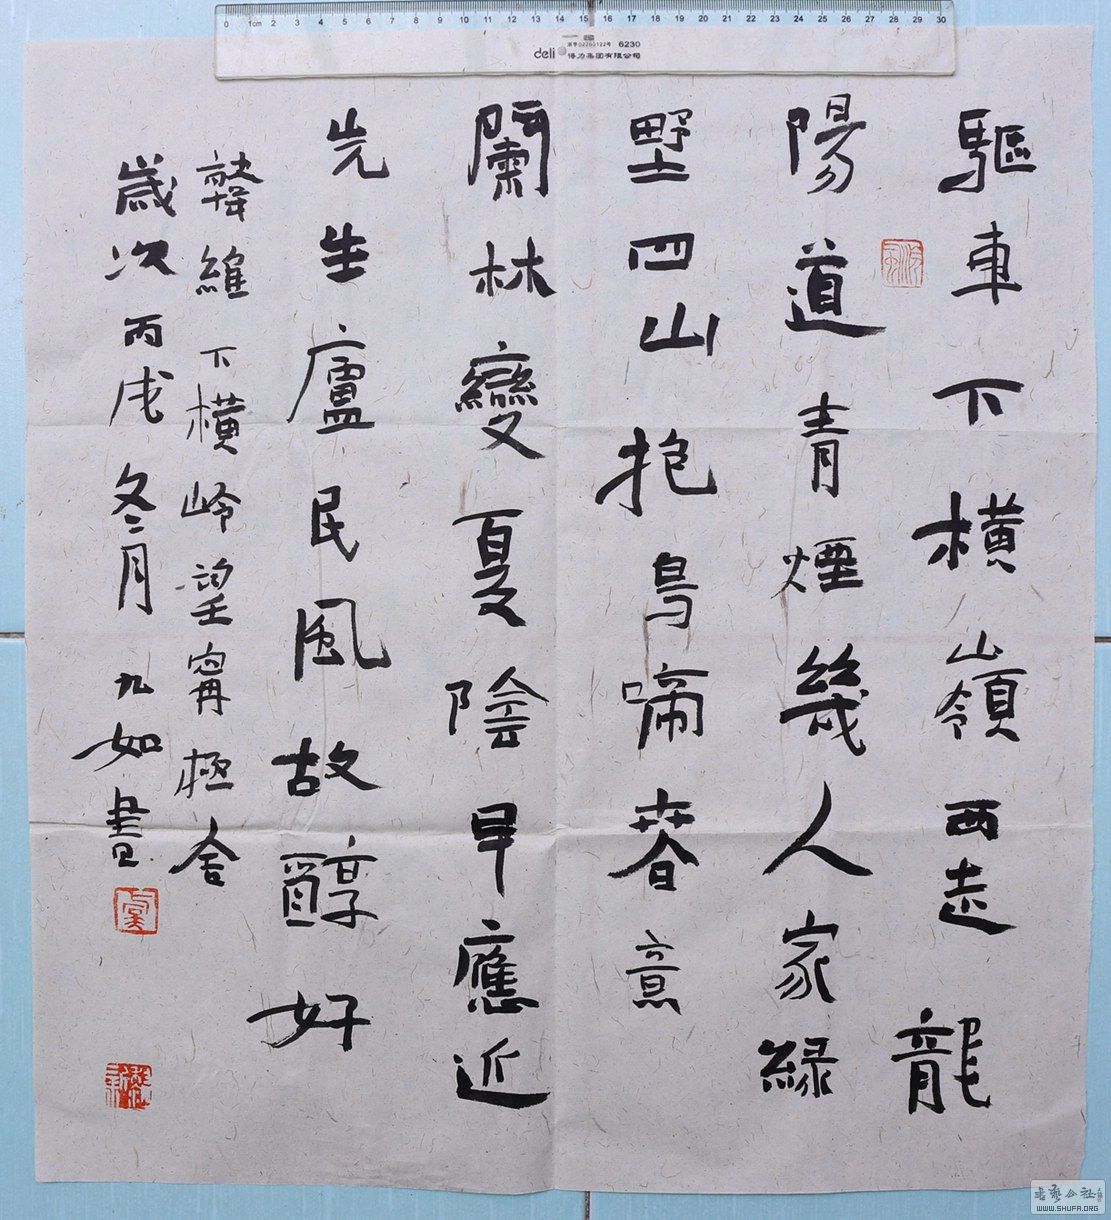 0 1cm 2 3 4 5 6 7 8 9 10 11 12 13 14 15 16 17 18 19 20 21 22 23 24 25 26 27 28 29 30
6230
deli 得力集团有限公司
驅車下橫嶺西走龍
陽道青煙幾人家緑
野四山抱鳥啼春意
闌林變夏陰早應近
先生廬民風故醇好
韓維下橫岭望寧極舍
歲次丙戌冬月九如書
WWW.SHUFA.ORG